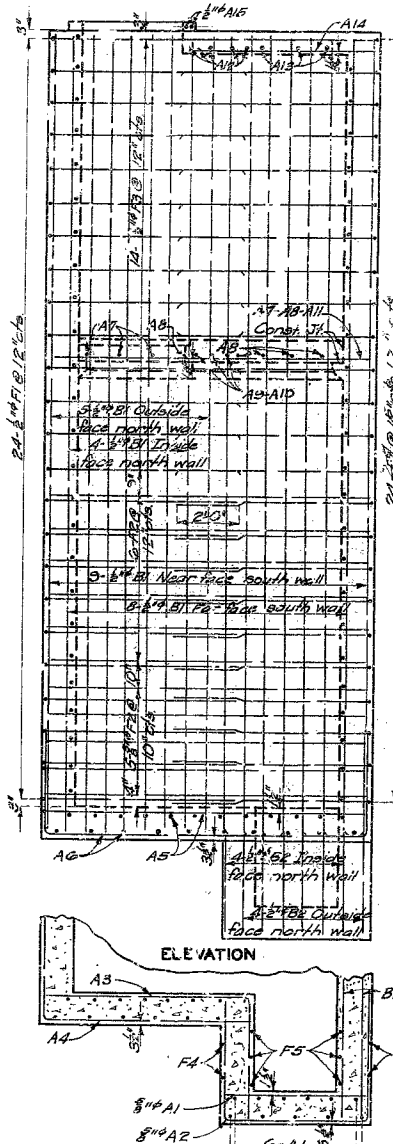 4-½"φA15
3"
3"
A14
A12
A13
14-½"φF3@12"cts.
24-½"φF1@12"cts.
A7
A8
A7-A8-A11
Const. Jt.
A8
A9-A10
5-½"φB1 Outside
face north wall
4-½"φB1 Inside
face north wall
9"
2'-0"
12"cts.
9-½"φB1 Near face south wall
8-½"φB1 Far face south wall
10"
10"cts.
4"
3"
A6
A5
Inside
face north wall
4-½"φB2 Outside
face north wall
ELEVATION
A3
A4
F4
F5
⅝"φA1
⅝"φA2